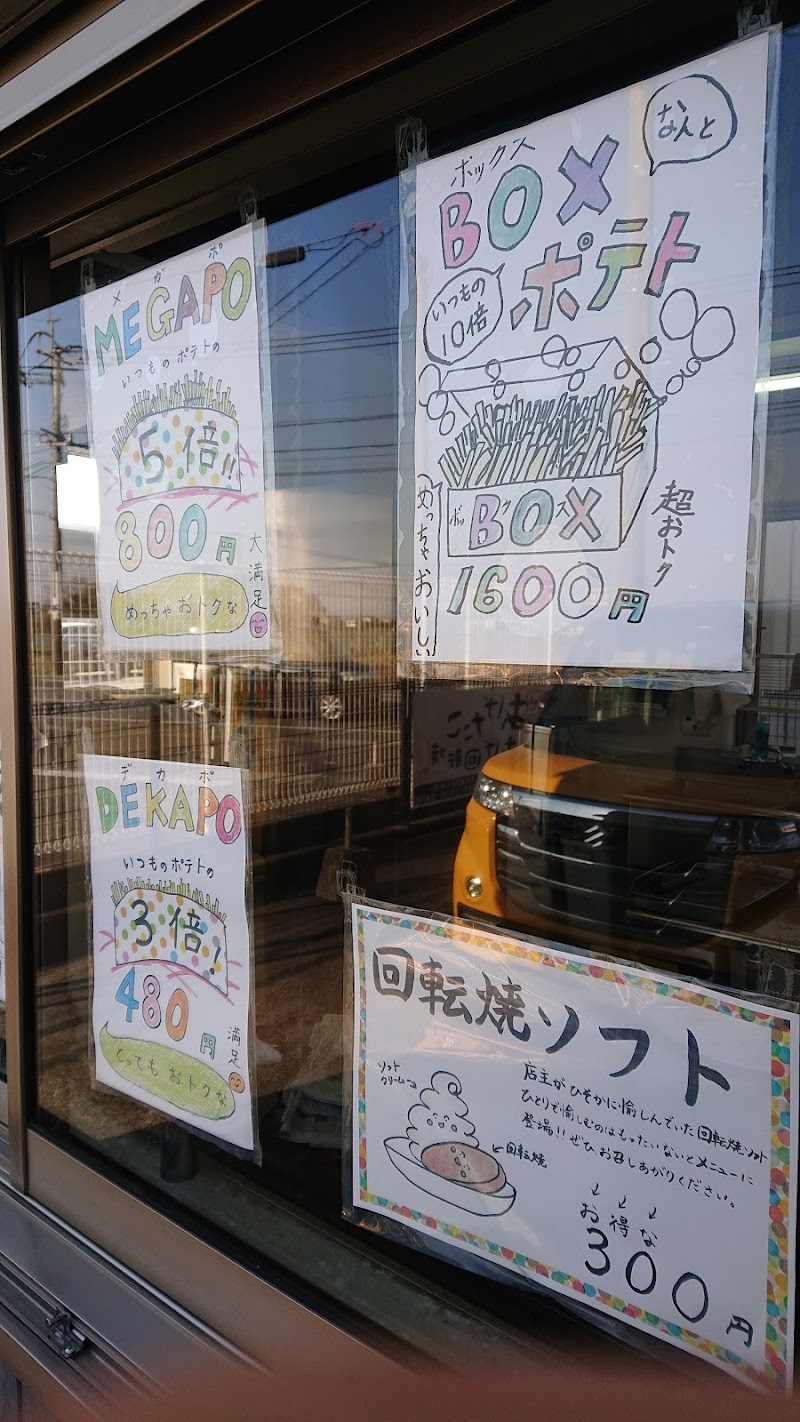 メガポ
MEGAPO
いつものポテトの
5倍!!
800円
大満足
めっちゃおトクな
ボックス
BOX
ポテト
なんと
いつもの
10倍
ボックス
BOX
めっちゃおいしい
超おトク
1600円
デカポ
DEKAPO
いつものポテトの
3倍!
480円
満足
とってもおトクな
回転焼ソフト
ソフト
クリーム
回転焼
店主がひそかに愉しんでいた回転焼ソフト
ひとりで愉しむのはもったいないとメニューに
登場!!ぜひお召しあがりください。
お得な
300円